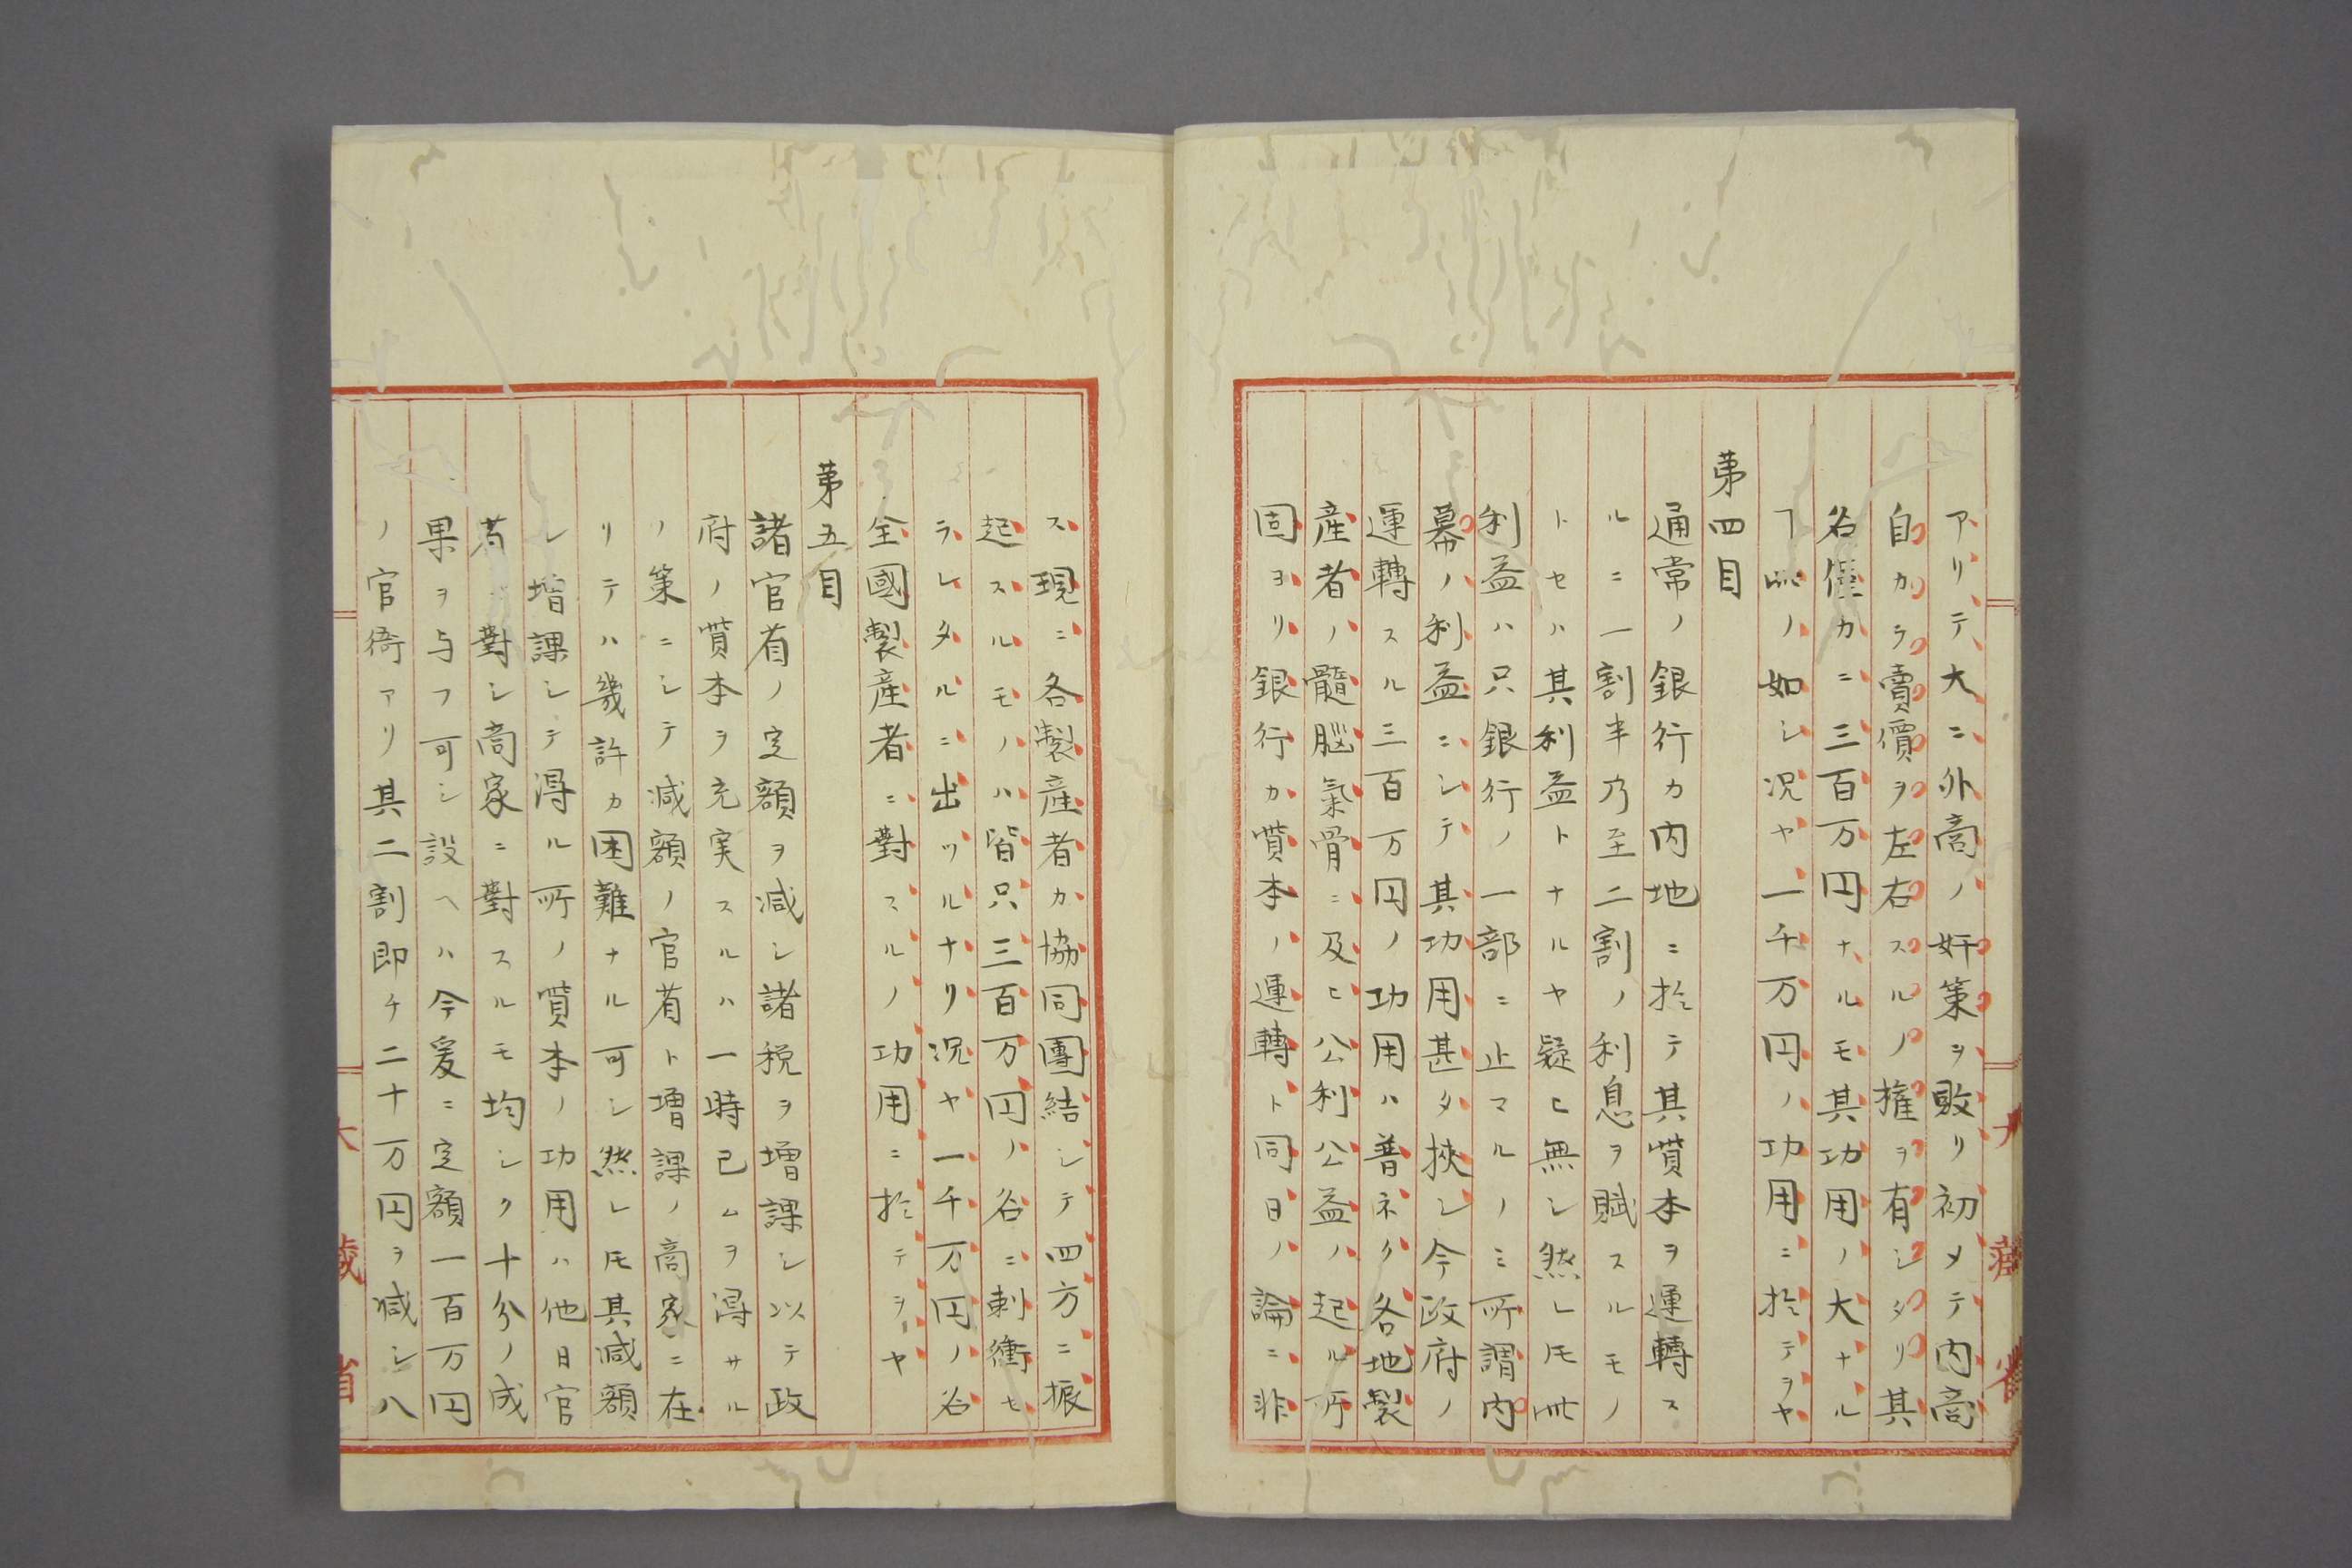 アリテ大ニ外商ノ奸策ヲ敗リ初メテ内商
自カラ賣價ヲ左右スルノ權ヲ有シタリ其
名僅カニ三百万円ナルモ其功用ノ大ナル
ヿ此ノ如シ况ヤ一千万円ノ功用ニ於テヲヤ
第四目
通常ノ銀行カ内地ニ於テ其貲本ヲ運轉ス
ルニ一割半乃至二割ノ利息ヲ賦スルモノ
トセハ其利益トナルヤ疑ヒ無シ然レ𪜈此
利益ハ只銀行ノ一部ニ止マルノミ所謂内
幕ノ利益ニシテ其功用甚タ挾シ今政府ノ
運轉スル三百万円ノ功用ハ普ネク各地製
産者ノ髓腦氣骨ニ及ヒ公利公益ノ起ル所
固ヨリ銀行カ貲本ノ運轉ト同日ノ論ニ非
ス現ニ各製産者カ協同團結シテ四方ニ振
起スルモノハ皆只三百万円ノ谷ニ刺衝セ
ラレタルニ出ツルナリ况ヤ一千万円ノ谷
全國製産者ニ對スルノ功用ニ於テヲヤ
第五目
諸官省ノ定額ヲ减シ諸税ヲ増課シ以テ政
府ノ貲本ヲ充実スルハ一時已ムヲ得サル
ノ策ニシテ减額ノ官省ト増課ノ商家ニ在
リテハ幾許カ困難ナル可シ然レ𪜈其减額
シ増課シテ得ル所ノ貲本ノ功用ハ他日官
省ニ對シ商家ニ對スルモ均シク十分ノ成
果ヲ与フ可シ設ヘハ今爰ニ定額一百万円
ノ官衙アリ其二割即チ二十万円ヲ减シ八
大藏省